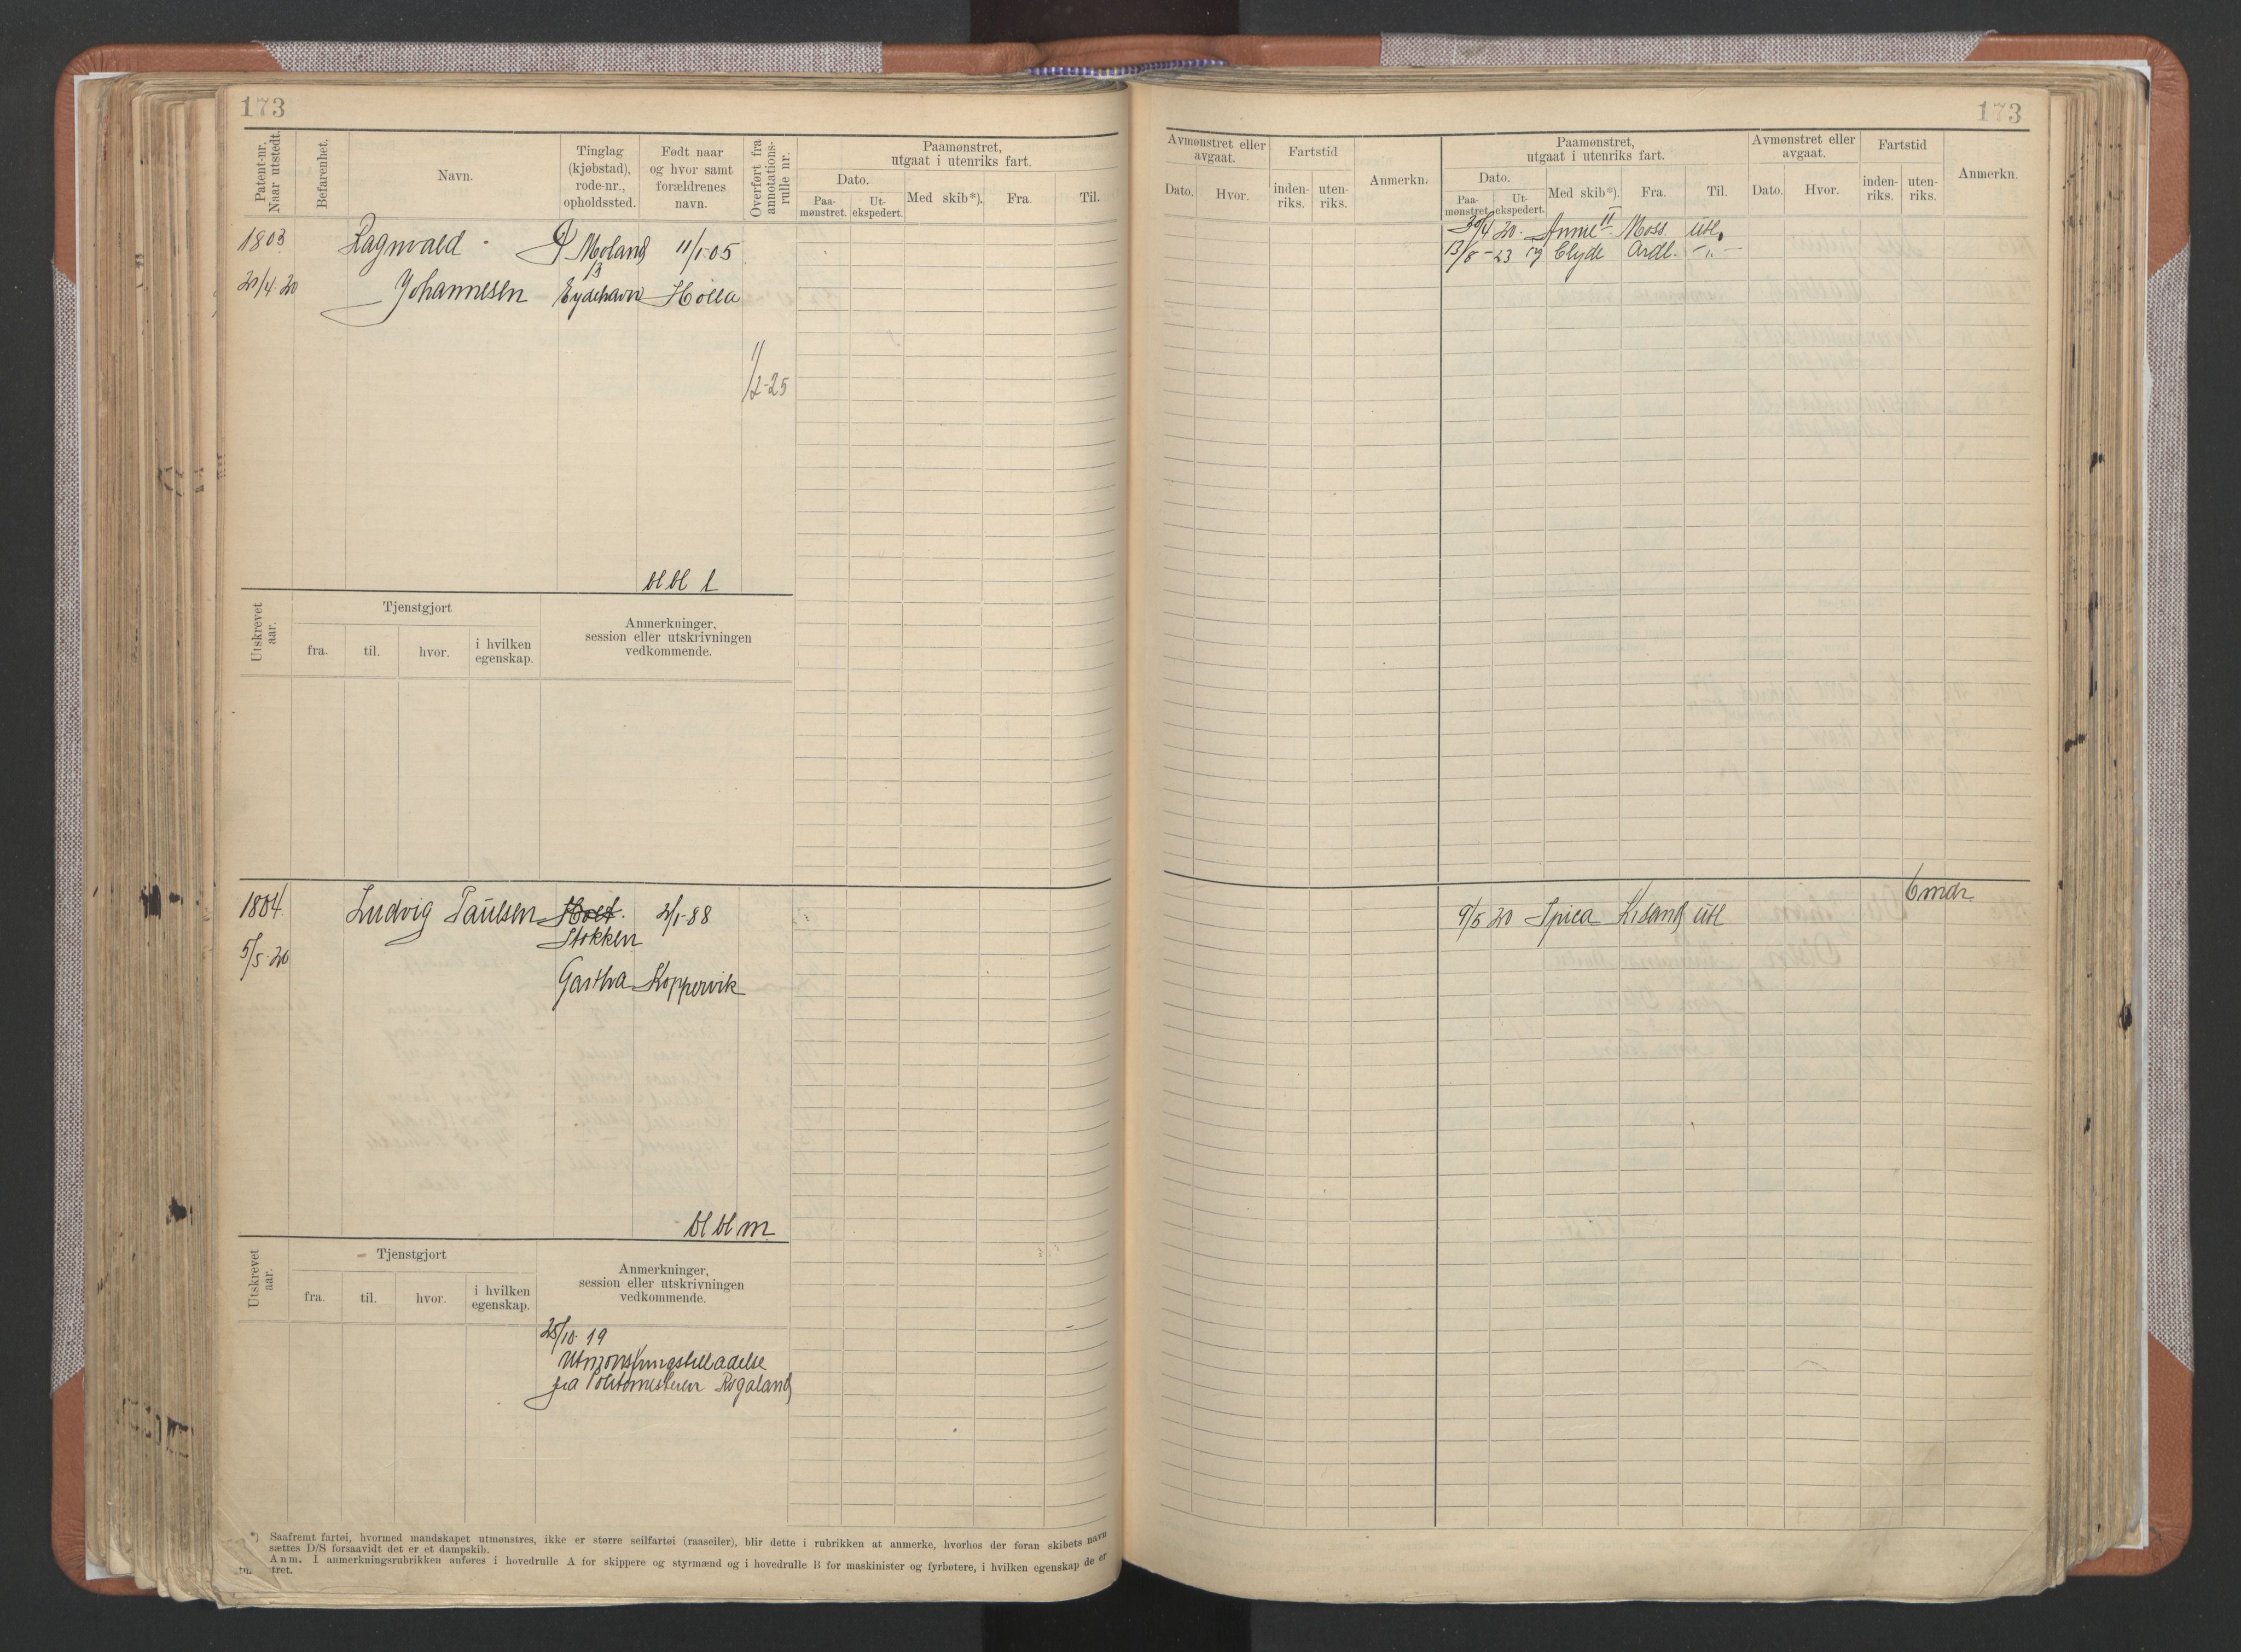 173
Patent-nr. Naar utstedt.
Befarenhet.
Navn.
Tinglag (kjøbstad), rode-nr., opholdssted.
Født naar og hvor samt forældrenes navn.
Overført fra annotations-rulle nr.
Paamønstret, utgaat i utenriks fart.
Dato.
Paa-mønstret.
Ut-ekspedert.
Med skib*).
Fra.
Til.
1803
Ragnvald
Moland
11/1-05
13
20/4 20
Johannesen
Eydehavn
Holla
1/2-25
bl bl l
Utskrevet aar.
Tjenstgjort
fra.
til.
hvor.
i hvilken egenskap.
Anmerkninger, session eller utskrivningen vedkommende.
1804
Ludvig Paulsen
Holt.
2/1-88
Stokken
5/5-20
Gartha
Koppervik
bl bl m
Utskrevet aar.
Tjenstgjort
fra.
til.
hvor.
i hvilken egenskap.
Anmerkninger, session eller utskrivningen vedkommende.
25/10-19
Utmønstringstilladelse
fra Politimesteren Rogaland
*) Saafremt fartøi, hvormed mandskapet utmønstres, ikke er større seilfartøi (raaseiler), blir dette i rubrikken at anmerke, hvorhos der foran skibets navn
sættes D/S forsaavidt det er et dampskib.
Anm. I anmerkningsrubrikken anføres i hovedrulle A for skippere og styrmænd og i hovedrulle B for maskinister og fyrbøtere, i hvilken egenskap de er
173
Avmønstret eller avgaat.
Dato.
Hvor.
Fartstid
inden-riks.
uten-riks.
Anmerkn.
Paamønstret, utgaat i utenriks fart.
Dato.
Paa-mønstret
Ut-ekspedert.
Med skib*).
Fra.
Til.
Avmønstret eller avgaat.
Dato.
Hvor.
Fartstid
inden-riks.
uten-riks.
Anmerkn.
30/4 20. Annie II Moss utl.
13/8-23 Clyde Ardl. -"-
6 mdr.
9/5 20 Spica Krsand utl